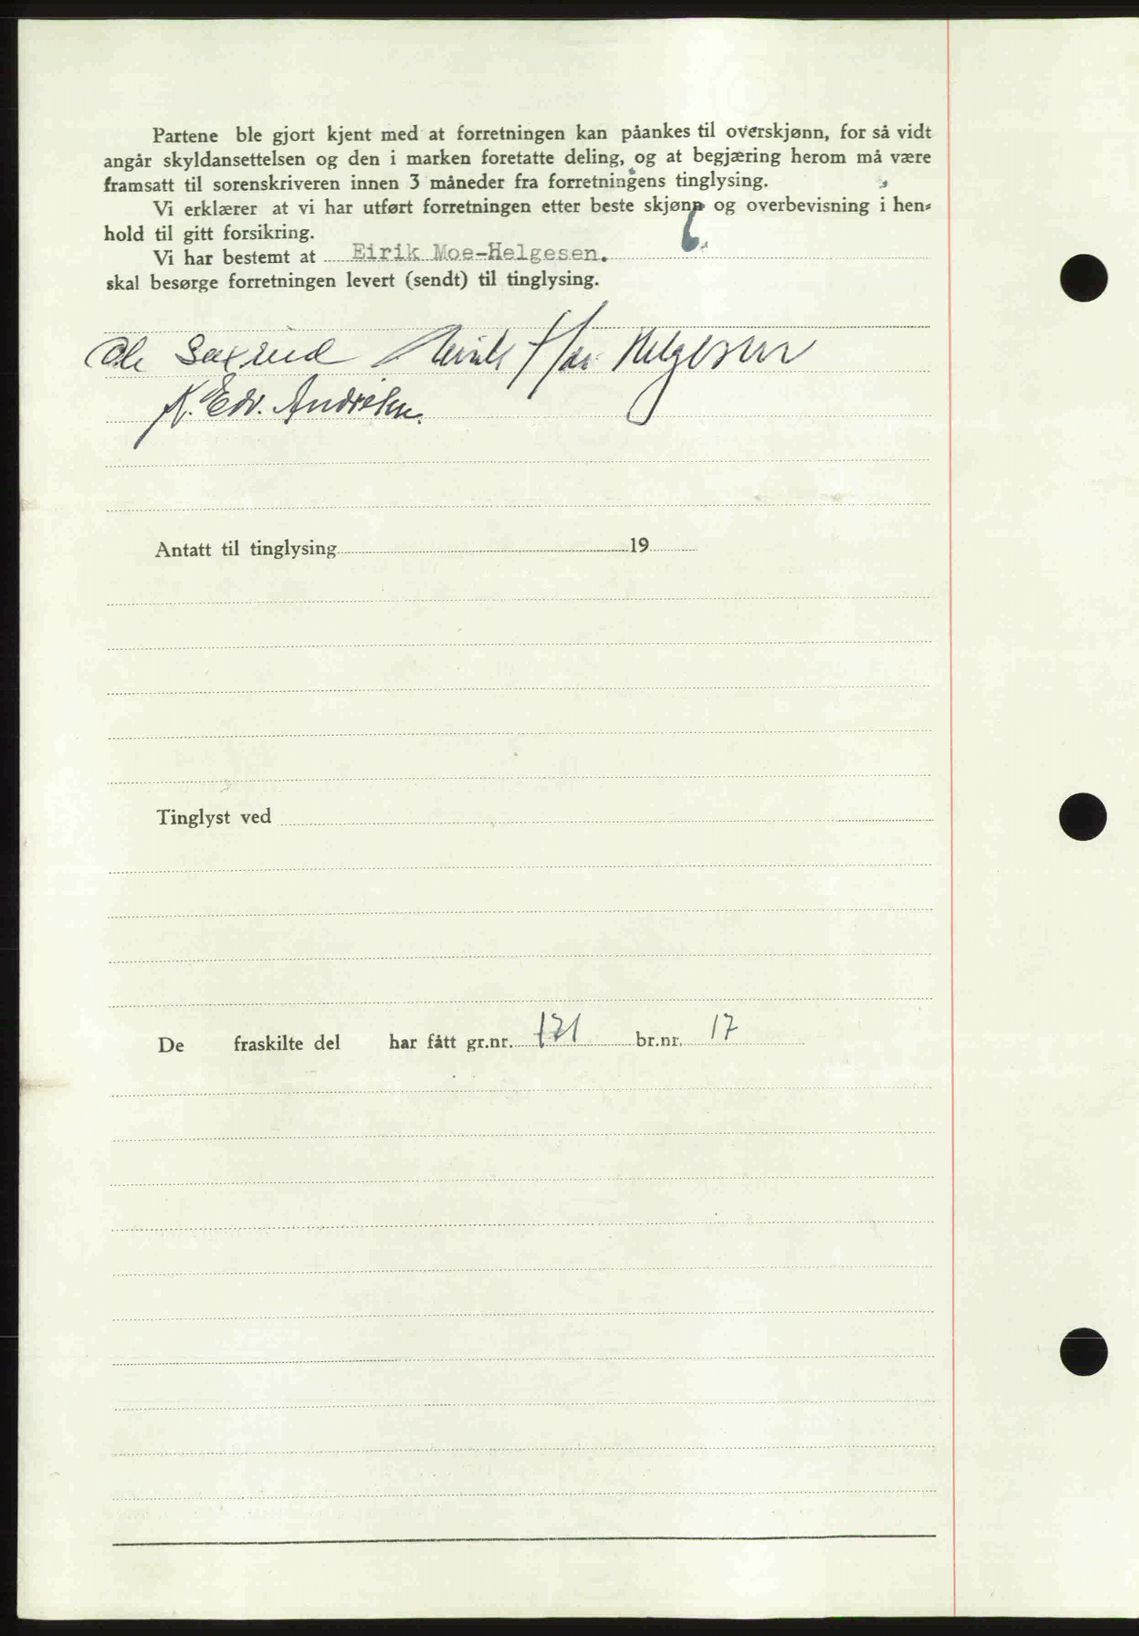 Partene ble gjort kjent med at forretningen kan påankes til overskjønn, for så vidt
angår skyldansettelsen og den i marken foretatte deling, og at begjæring herom må være
framsatt til sorenskriveren innen 3 måneder fra forretningens tinglysing.
Vi erklærer at vi har utført forretningen etter beste skjønn og overbevisning i hen-
hold til gitt forsikring.
Vi har bestemt at Eirik Moe-Helgesen.
skal besørge forretningen levert (sendt) til tinglysing.
Ole Saxrud Eirik Moe Helgesen
K. Edv. Andresen.
Antatt til tinglysing 19
Tinglyst ved
De fraskilte del har fått gr.nr. 121 br.nr. 17